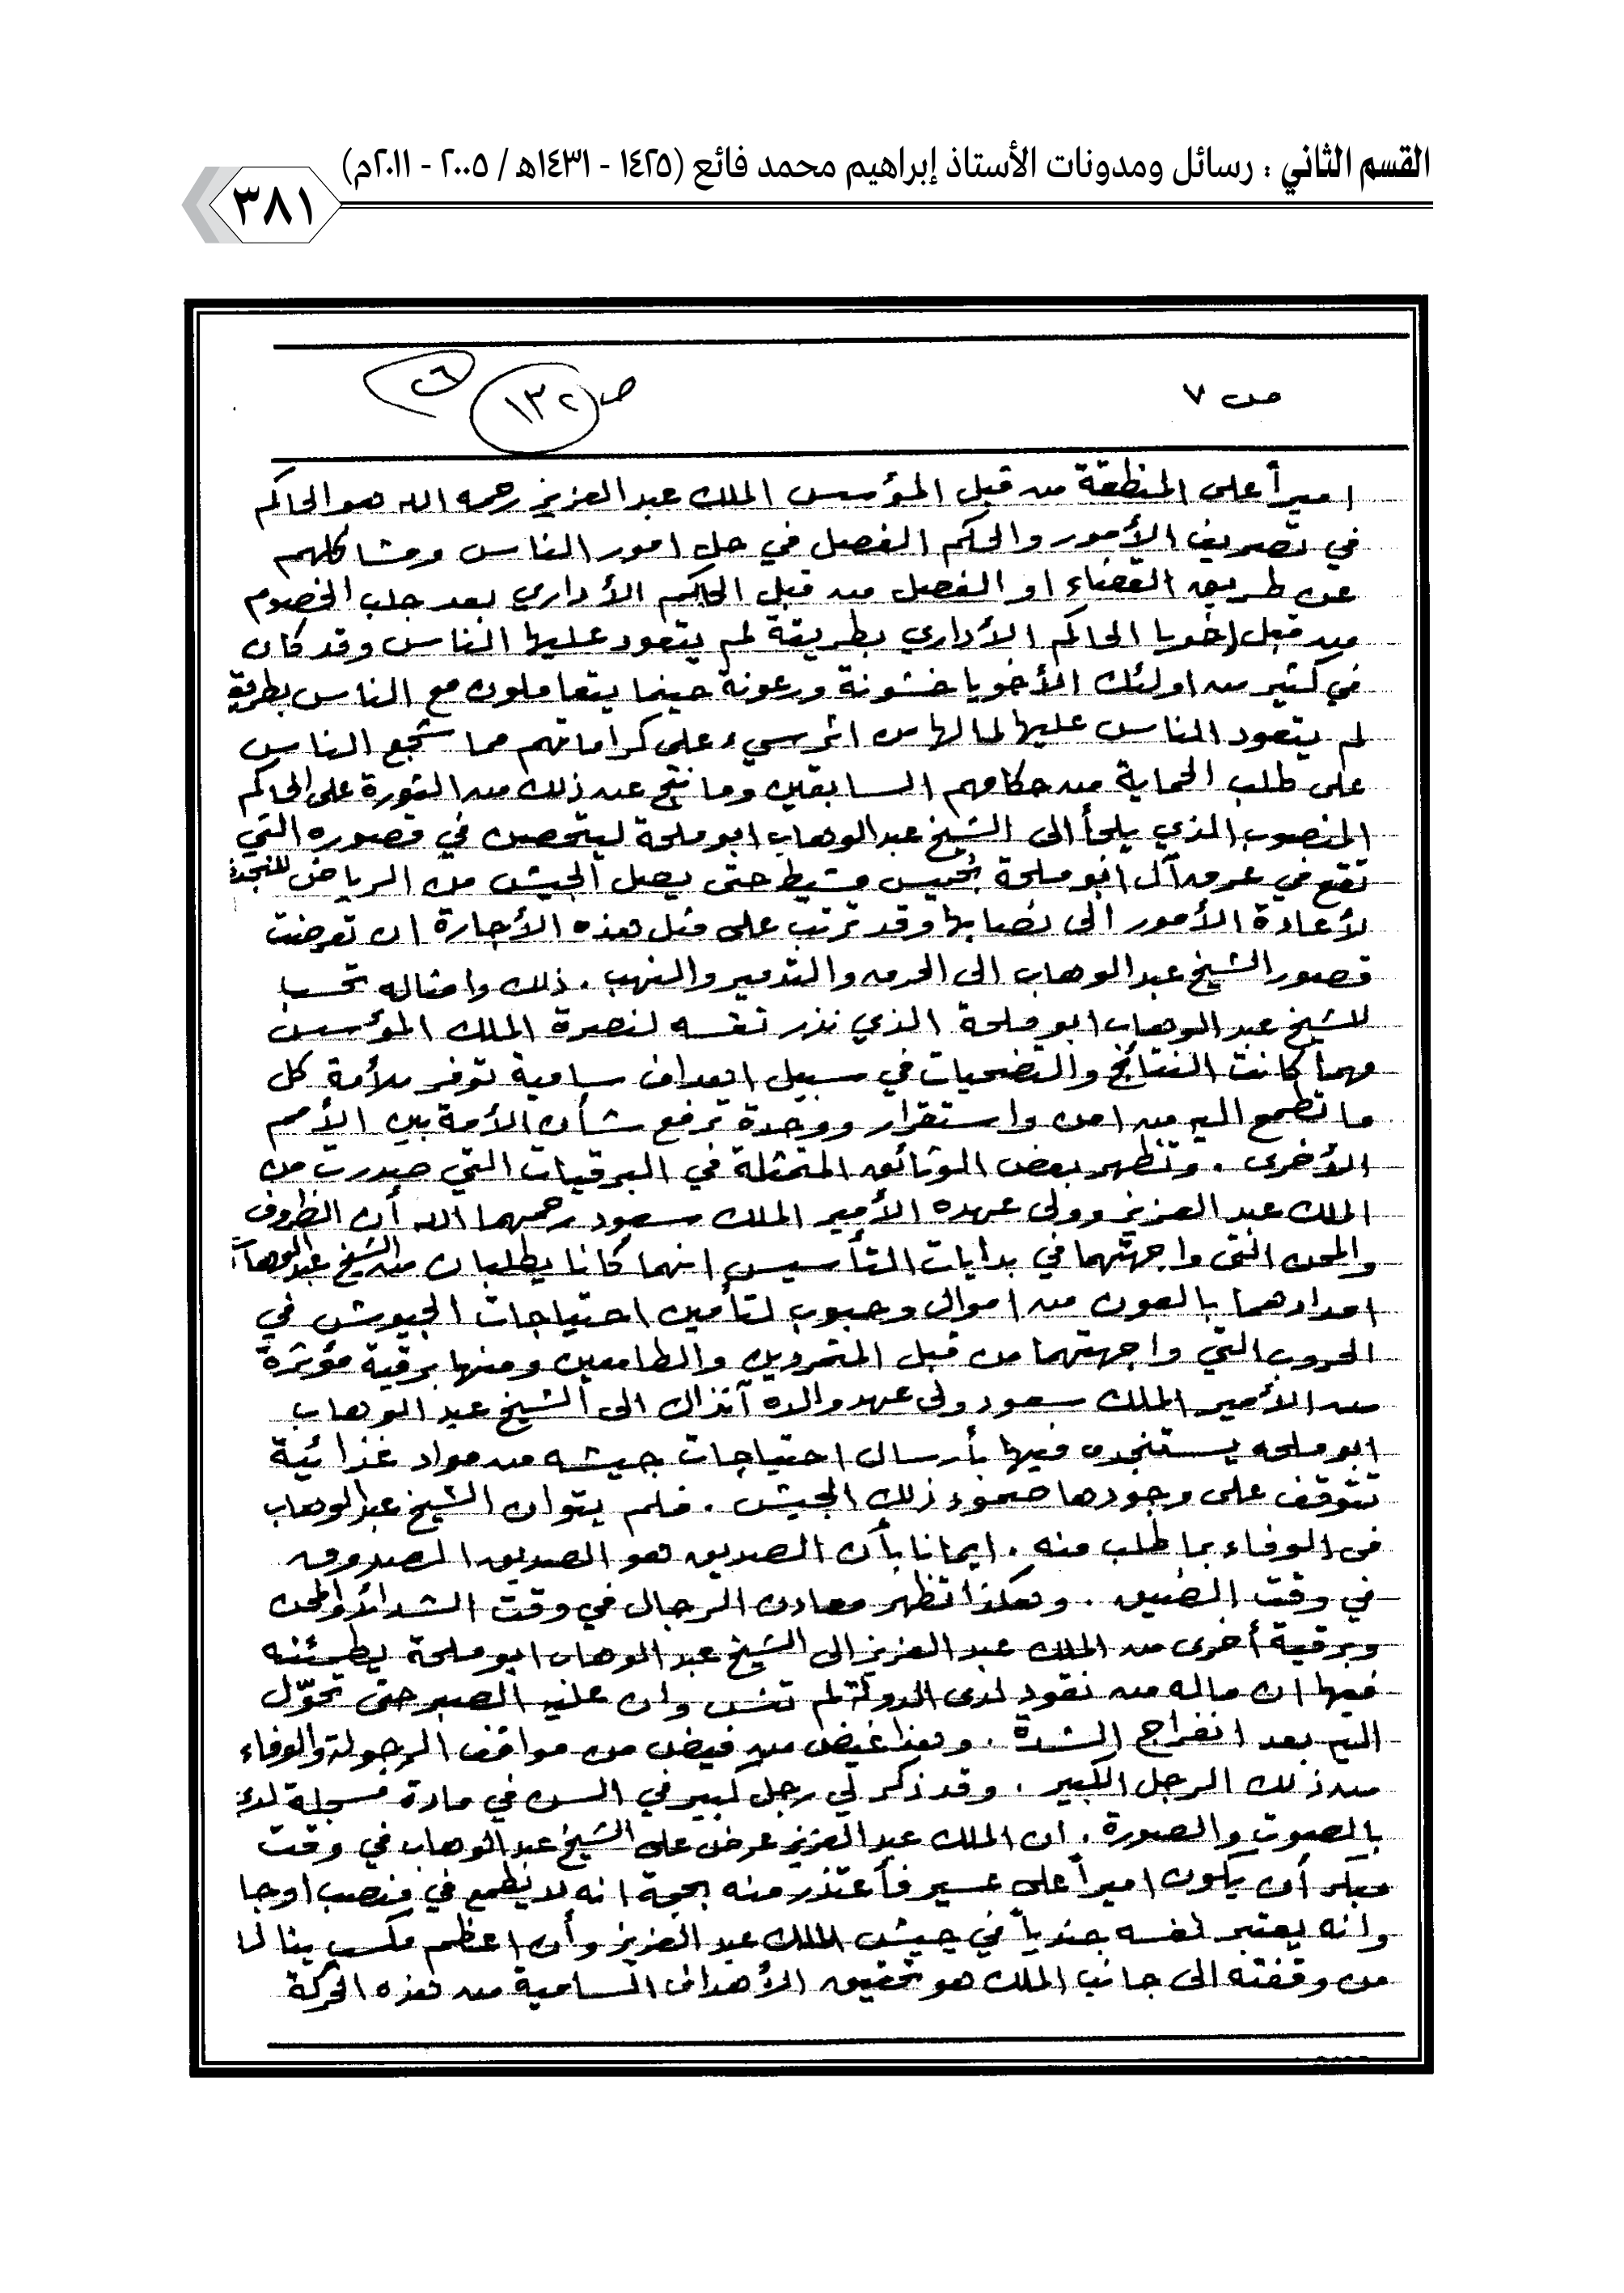 القسم الثاني : رسائل ومدونات الأستاذ إبراهيم محمد فائع (١٤٢٥ - ١٤٣١هـ / ٢٠٠٥ - ٢٠١١م)
٣٨١
ص ٧
ص ١٣٢
٦
اميراً على المنطقة من قبل المؤسس الملك عبد العزيز رحمه الله هو الحاكم
في تصريف الأمور والحكم الفصل في حل امور الناس ومشاكلهم
عن طريق القضاء او الفصل من قبل الحاكم الأداري بعد جلب الخصوم
من قبل اخويا الحاكم الأداري بطريقة لم يتعود عليها الناس وقد كان
في كثير من اولئك الأخويا خشونة ورعونة حينما يتعاملون مع الناس بطريقة
لم يتعود الناس عليها لما لها من اثر سيء على كراماتهم مما شجع الناس
على طلب الحماية من حكامهم السابقين وما نتج عن ذلك من الثورة على الحاكم
المنصوب الذي يلجأ الى الشيخ عبد الوهاب ابو ملحة ليتحصن في قصوره التي
تقع في عرق آل ابو ملحة بخميس مشيط حتى يصل الجيش من الرياض للنجدة
لأعادة الأمور الى نصابها وقد ترتب على مثل هذه الأجارة ان تعرضت
قصور الشيخ عبد الوهاب الى الحرق والتدمير والنهب . ذلك وامثاله تحسب
للشيخ عبد الوهاب ابو ملحة الذي نذر نفسه لنصرة الملك المؤسس
مهما كانت النتائج والتضحيات في سبيل اهداف سامية توفر للأمة كل
ما تطمح اليه من امن واستقرار ووحدة ترفع شأن الأمة بين الأمم
الأخرى . وتظهر بعض الوثائق المتمثلة في البرقيات التي صدرت من
الملك عبد العزيز وولى عهده الأمير الملك سعود رحمهما الله أن الظروف
والمحن التي واجهتهما في بدايات التأسيس انهما كانا يطلبان من الشيخ عبد الوهاب
امدادهما بالعون من اموال وحبوب لتأمين احتياجات الجيوش في
الحروب التي واجهتهما من قبل المتمردين والطامعين ومنها برقية مؤثرة
من الأمير الملك سعود ولى عهد والده آنذاك الى الشيخ عبد الوهاب
ابو ملحه يستنجده فيها بأرسال احتياجات جيشه من مواد غذائية
تتوقف على وجودها صمود ذلك الجيش . فلم يتوان الشيخ عبد الوهاب
في الوفاء بما طلب منه . ايمانا بأن الصديق هو الصديق الصدوق
في وقت الضيق . وهكذا تظهر معادن الرجال في وقت الشدائد والمحن
وبرقية أخرى من الملك عبد العزيز الى الشيخ عبد الوهاب ابو ملحة يطمئنه
فيها ان ماله من نقود لدى الدولة لم تنس وان عليه الصبر حتى تحوّل
اليه بعد انفراج الشدة . وهذا غيض من فيض من مواقف الرجولة والوفاء
من ذلك الرجل الكبير . وقد ذكر لي رجل كبير في السن في مادة مسجلة لدي
بالصوت والصورة . ان الملك عبد العزيز عرض على الشيخ عبد الوهاب في وقت
مبكر أن يكون اميراً على عسير فأعتذر منه بحجة انه لا يطمع في منصب او جا
وانه يعتبر نفسه جندياً في جيش الملك عبد العزيز وأن اعظم مكسب ينالـ
من وقفته الى جانب الملك هو تحقيق الأهداف السامية من هذه الحركة